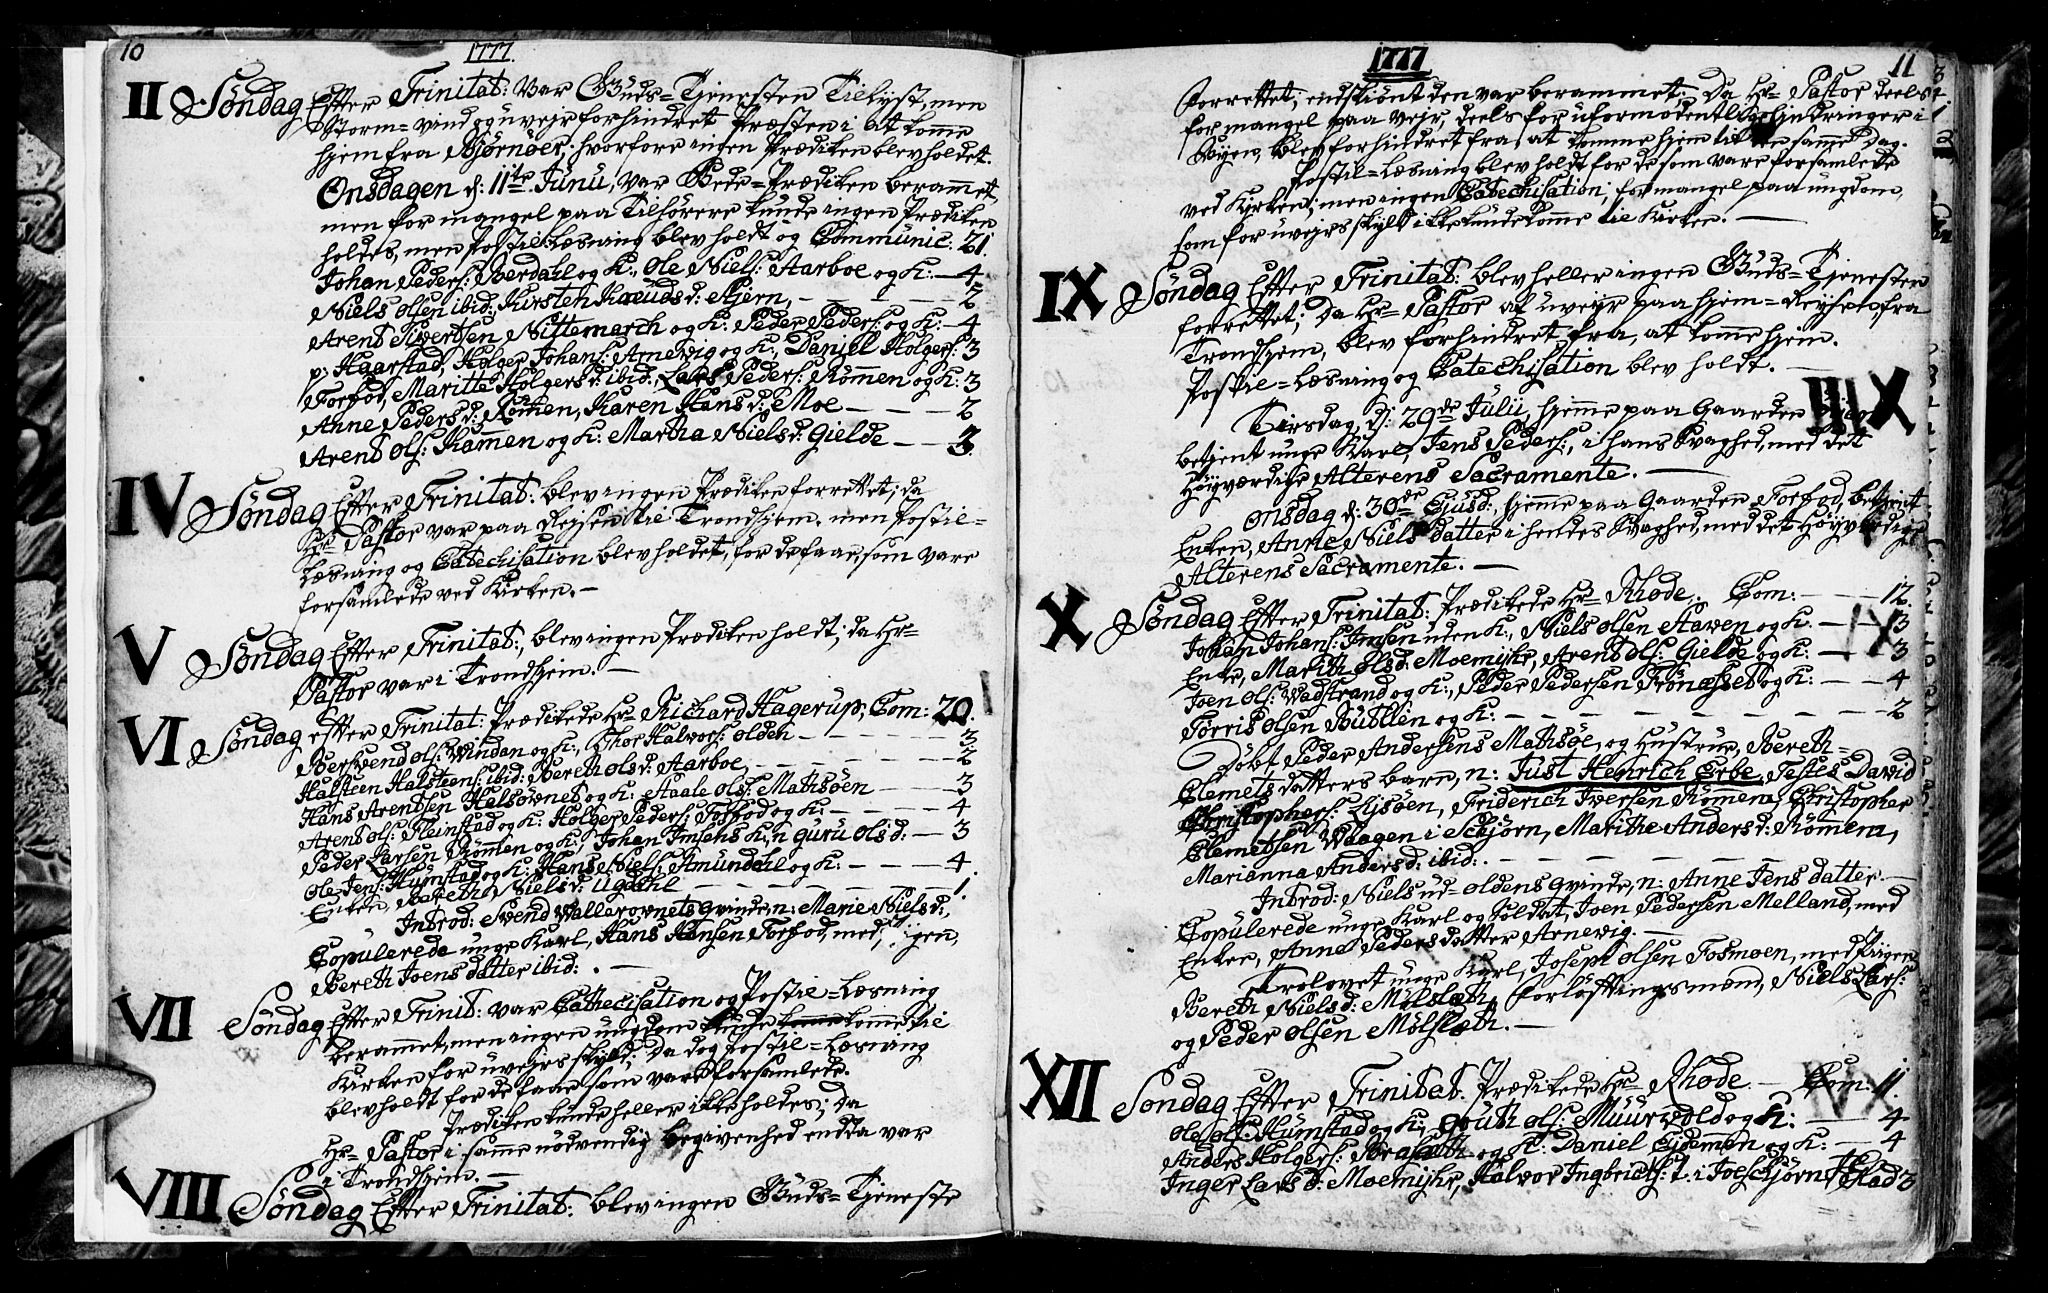 10
1777.
II Søndag Efter Trinitat: Var Guds=Tjenesten Tillyst, men
Storm=vind og uvejr forhindret Præsten i at komme
hjem fra Bjørnøer; hvorfore ingen Prædiken blev holdet.
Onsdagen d: 11te Junii, var Bede=Prædiken berammet,
men for mangel paa Tilhørere kunde ingen Prædiken
holdes, men Postil-Læsning blev holdt og Communic: 21.
Johan Peders: Berdahl og K:, Ole Niels: Aarboe og K: — 4
Niels Olsen ibid:, Kirsten Knuds d: Skjern, — — — 2
Arent Sivertsen Nittemarch og K: Peder Peders: og K: — 4
p: Haarstad, Holger Johans: Arnevig og K:, Daniel Holgers: 3
Forfod, Maritte Holgers d: ibid:, Lars Peders: Rømmen og K: 3
Anne Peders d: Römen, Karen Hans d: Moe — — — 2
Arent Ols: Hammen og K: Martha Niels d: Gielde — — 3
IV Søndag Efter Trinitat: blev ingen Prædiken forrettet; da
Hr= Pastor var paa Rejsen til Trondhjem. men Postil=
Læsning og Catechisation blev holdet, for de faae, som vare
forsamlede ved Kirken. —
V Søndag Efter Trinitat:, blev ingen Prædiken holdt; da Hr=
Pastor var i Trondhjem. —
VI Søndag efter Trinitat: Prædikede Hr= Richard Hagerup, Com: 20.
Bersvend Ols: Vindan og K:, Thor Halvors: Olden — — — 3
Halsteen Halsteens: ibid: Bereth Ols d: Aarboe, — — — 2
Hans Arentsen Halsövnet og K: Staale Ols: Mathisöen — — 3
Arent Ols: Fleinstad og K: Holger Peders: Forfod og K: — — 4
Peder Larsen Römen og K:, Johan Imsens K:, n Guru Ols d: — 3
Ole Jens: Humstad og K: Hans Niels: Amundahl og K: — — 4
Enken, Bereth Niels d: Ugdahl — — — — 1.
Introd: Svend Vallersvnets Qvinde, n: Marie Niels d:,
Copulerede unge Karl, Hans Hansen Forfod, med, Pigen,
Bereth Joens datter ibid: . —
VII Søndag Efter Trinit: var Cathecisation og Postil=Læsning
berammet, men ingen ungdom kunde komme til
Kirken for uvejrs skyld; Da dog Postil=Læsning
blev holdt for de faae som vare forsamlede.
Prædiken kunde heller ikke holdes; da
Hr= Pastor i samme nödvendig begivenhed endda var
i Trondhjem. —
VIII Søndag Efter Trinitat: blev ingen Guds=Tjeneste
1777
11
forrettet, endskiönt den var berammet: Da Hr= Pastor deels
for mangel paa Vejr, deels for uformodentlige hindringer i
Vejen, blev forhindret fra, at komme hjem til den samme Dag.
Postil=Læsning blev holdt for de som vare forsamlede
ved Kirken; men ingen Catechisation, for mangel paa ungdom,
som for uvejrs skyld ikke kunde komme til Kirken. —
IX Søndag Efter Trinitat: blev heller ingen Guds=Tjenesten
forrettet; Da Hr= Pastor af uvejr paa hjem=Rejsen fra
Trondhjem, blev forhindret fra, at komme hjem.
Postil=Læsning og Catechisation blev holdt. —
Tirsdag, d: 29de Julii, hjemme paa Gaarden
betjent unge Karl, Jens Peders:, i hans Svaghed, med det
Høyværdige Alterens Sacramente. —
Onsdag d: 30de Ejusd:, hjemme paa Gaarden Forfod, betjent
Enken, Anne Niels datter i hendes Svaghed, med det Høyværdige
Alterens Sacramente. —
X Søndag Efter Trinitat: Prædikede Hr= Rhode. Com: — — 12.
Johan Johans: Imsen uden K:, Niels Olsen Staven og K: — — 3
Enke, Marith Ols d: Moemyhr, Arent Ols: Gielde og K: — — 3
Joen Ols: Vadstrand og K:, Peder Pedersen Trönæsset og K: — — 4
Torris Olsen Butlien og K: — — — — — — — 2
Döbt Peder Andersens Mathisöe, og Hustrue, Bereth=
Clemets datters barn, n: Just Henrich Erbe, Testes David
Christophers: Lysöen, Friderich Iversen Römmen, Christopher
Clemetsen Waagen i Schjörn, Marithe Anders d: Römmem,
Marianna Anders d: ibid: . — — — — —
Introd: Niels ud=Oldens Qvinde, n: Anne Jens datter —
Copulerede unge Karl og Soldat, Joen Pedersen Melland, med
Enke, Anne Peders datter Arnevig. —
Trolovet unge Karl, Joseph Olsen Fosmoen, med Pigen
Bereth Niels d: Mölslæth, Forlöftningsmænd, Niels Lars:
og Peder Olsen Mölslæth. —
XII Søndag Efter Trinitat. Prædikede Hr= Rhode — Com: 11.
Ole Ols: Humstad og K:, Gouth Ols: Muurvold og K: — — 4
Anders Holgers: Bræslæth og K: Daniel Gjdemon og K: — 4
Inger Lars d: Moemyhr, Halvor Ingbricths: t. i Joeschjörn, 3